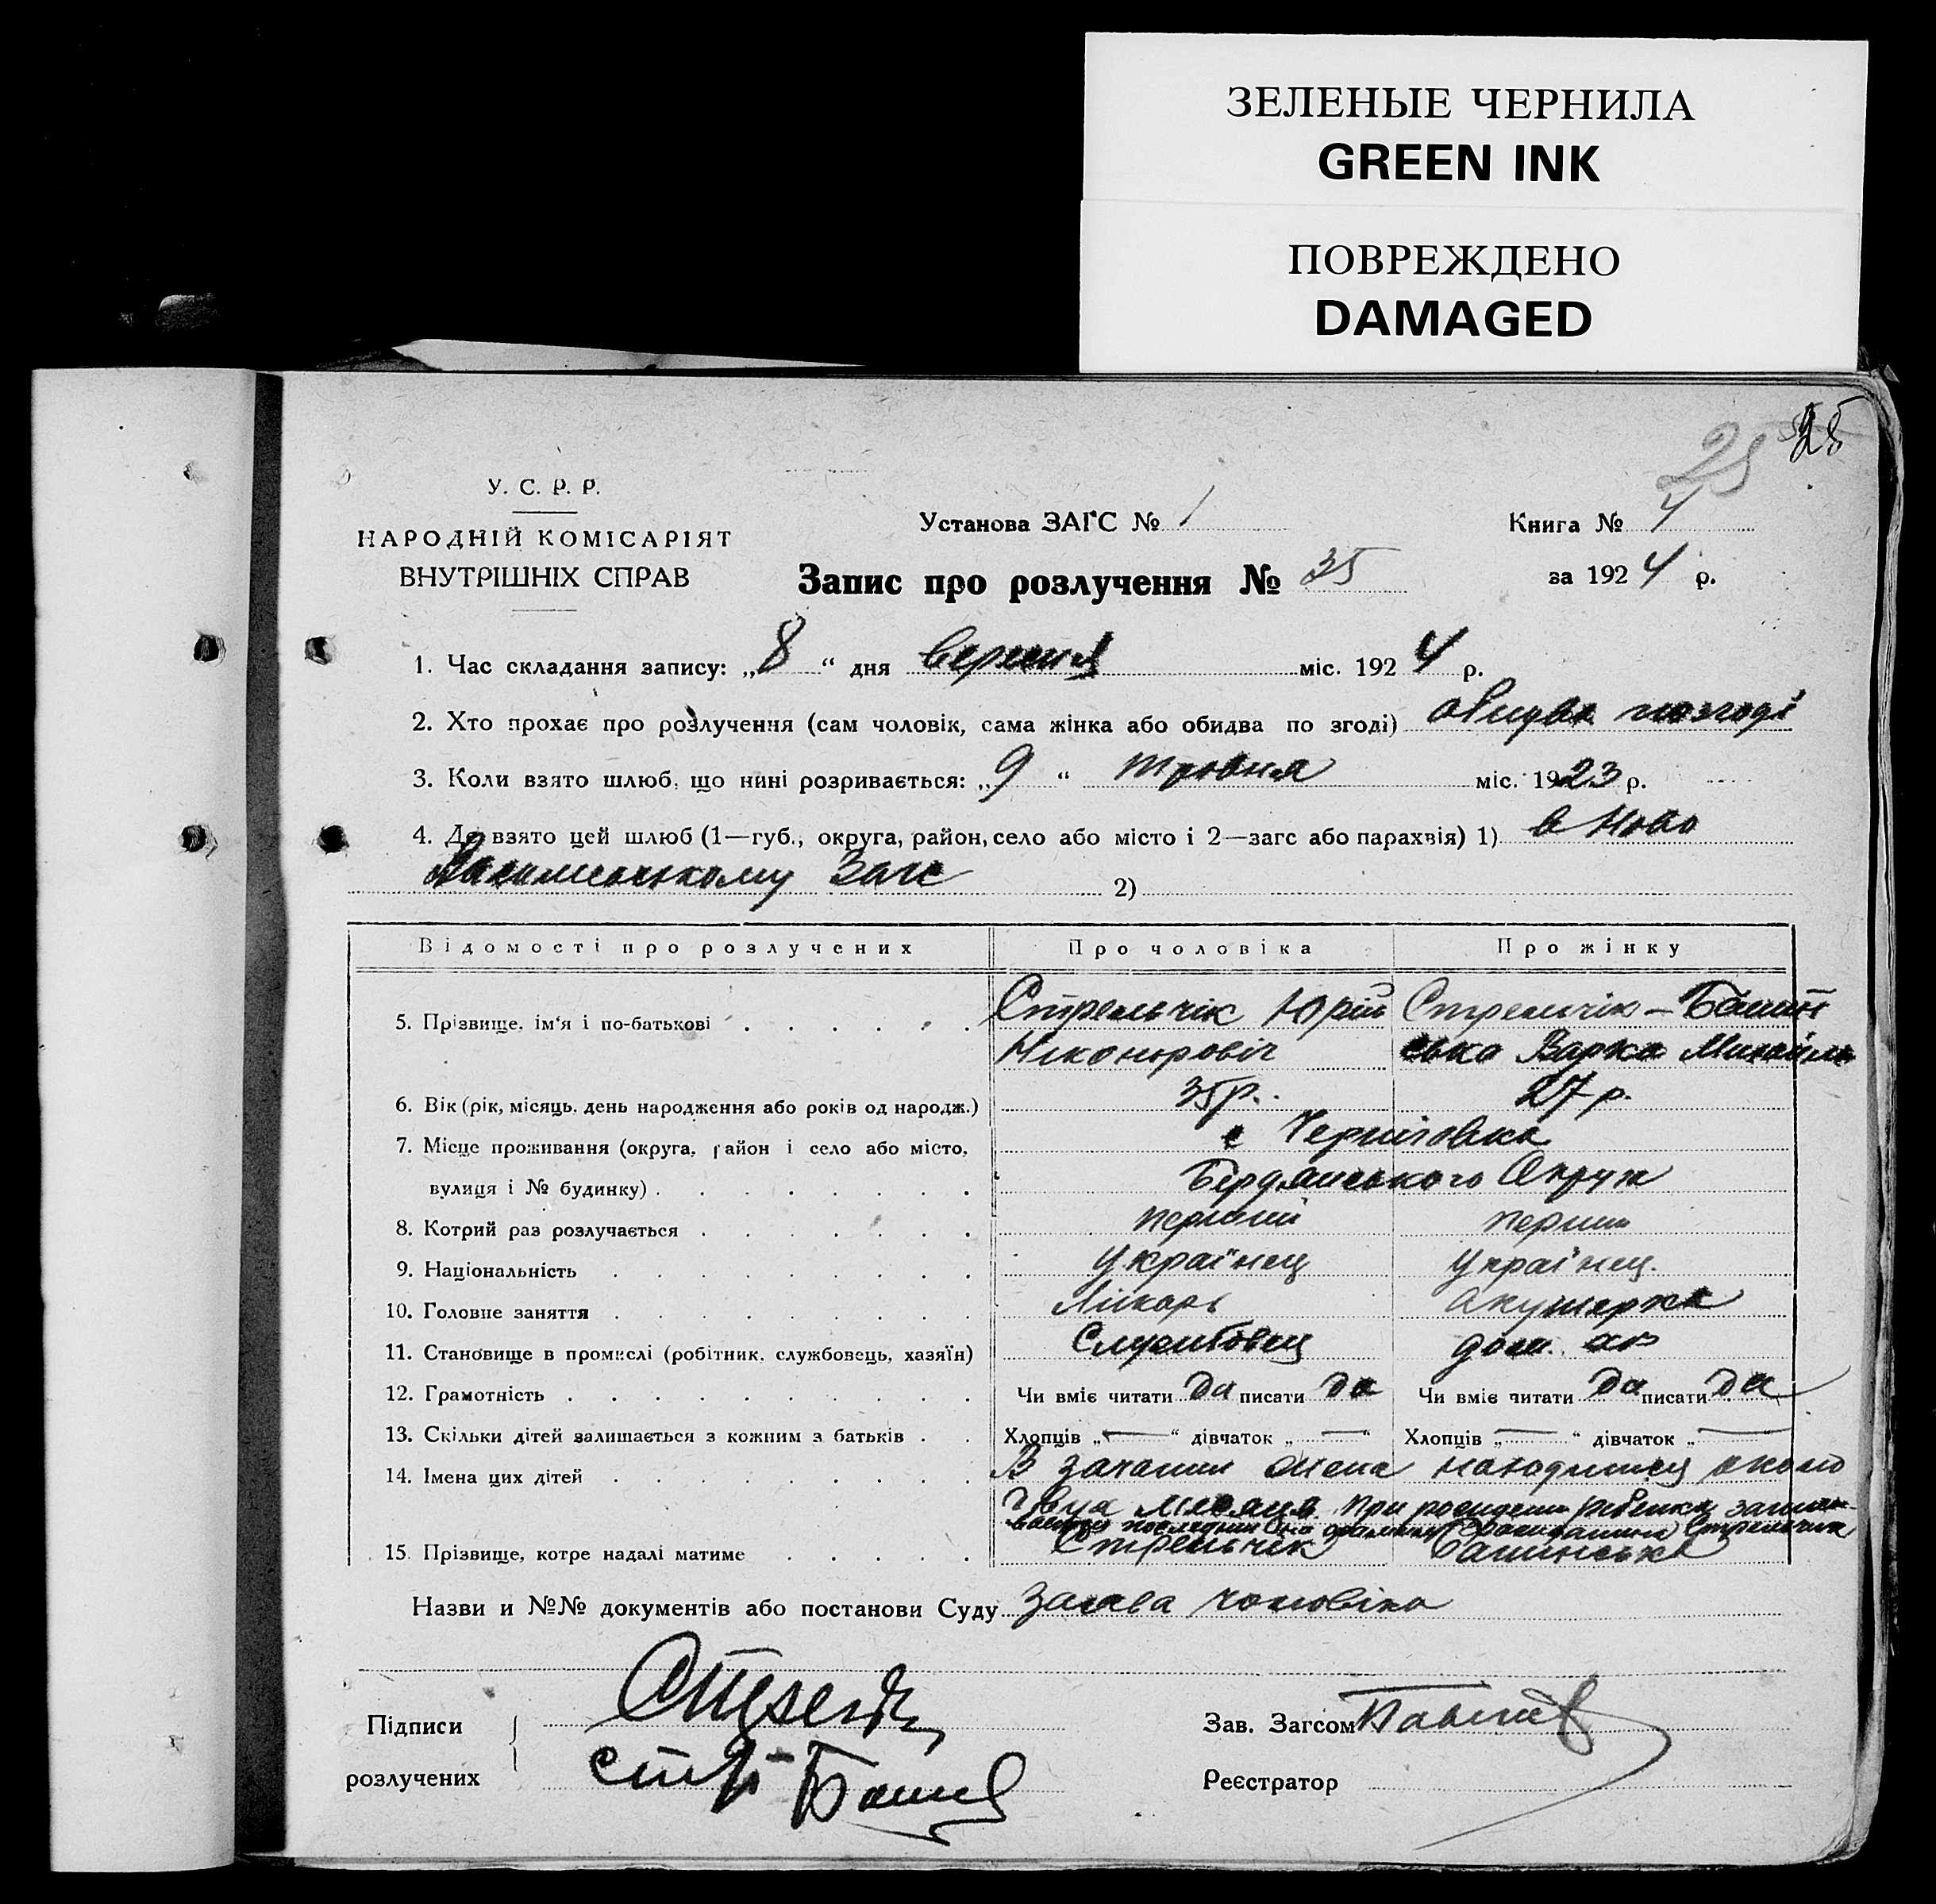 ЗЕЛЕНЫЕ ЧЕРНИЛА
GREEN INK
ПОВРЕЖДЕНО
DAMAGED
25
У. С. Р. Р.
НАРОДНІЙ КОМІСАРІЯТ
ВНУТРІШНІХ СПРАВ
Установа ЗАГС № 1
Книга № 4
Запис про розлучення № 35
за 1924 р.
1. Час складання запису: „8“ дня вересня міс. 1924 р.
2. Хто прохає про розлучення (сам чоловік, сама жінка або обидва по згоді) обидва по згоді
3. Коли взято шлюб, що нині розривається: „9“ травня міс. 1923 р.
4. Де взято цей шлюб (1—губ., округа, район, село або місто і 2—загс або парахвія) 1) в Ново
Загс 2)
Відомості про розлучених Про чоловіка Про жінку
5. Прізвище, ім'я і по-батькові . . . . . . Стрельчік Юрій Стрельчік-Башин
Никоноровіч ська Варка
6. Вік (рік, місяць, день народження або років од народж.) 35 р. 27 р.
7. Місце проживання (округа, район і село або місто, с Черніговка
вулиця і № будинку) . . . . . . . Бердянського Округ
8. Котрий раз розлучається . . . . . . . перший перший
9. Національність . . . . . . . . . Українец Українец.
10. Головне заняття . . . . . . . . . Лікарь акушерка
11. Становище в промислі (робітник, службовець, хазяїн) Службовец дом.
12. Грамотність . . . . . . . . . . Чи вміє читати Да писати Да Чи вміє читати Да писати Да
13. Скільки дітей залишається з кожним з батьків . . Хлопців „—“ дівчаток „—“ Хлопців „—“ дівчаток „—
14. Імена цих дітей . . . . . . . . . В жена находится около
при ребенка
Стрельчик
15. Прізвище, котре надалі матиме . . . . . Стрельчік Башинська
Назви и №№ документів або постанови Суду заява чоловіка
Підписи
розлучених
Зав. Загсом
Реєстратор